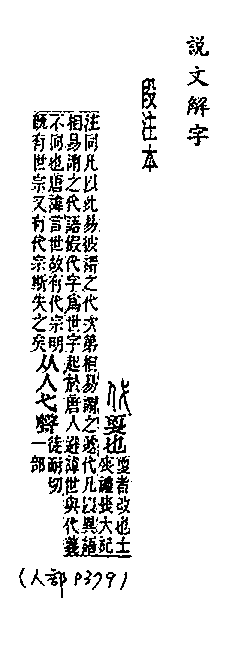 說文解字
段注本
代 更也 更者改也士
喪禮喪大記
注同凡以此易彼謂之代次弟相易謂之遞代凡以異語
相易謂之代語假代字爲世字起於唐人避諱世與代義
不同也唐諱言世故有代宗明
旣有世宗又有代宗斯失之矣 从人弋聲 徒耐切
一部
(人部 P379)